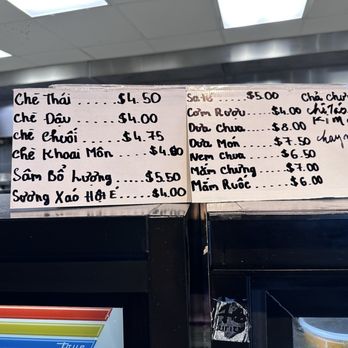 Chè Thái ..... $4.50
Chè Đậu ..... $4.00
Chè Chuối .... $4.75
Chè Khoai Môn .. $4.80
Sâm Bổ Lượng ..... $5.50
Sương Xáo Hột É . $4.00
Sa Tế ..... $5.00
Cơm Rượu ..... $4.00
Dưa Chua ..... $8.00
Dưa Món ..... $7.50
Nem Chua .... $6.50
Mắm Chưng .... $7.00
Mắm Ruốc .... $6.00
Chả
true